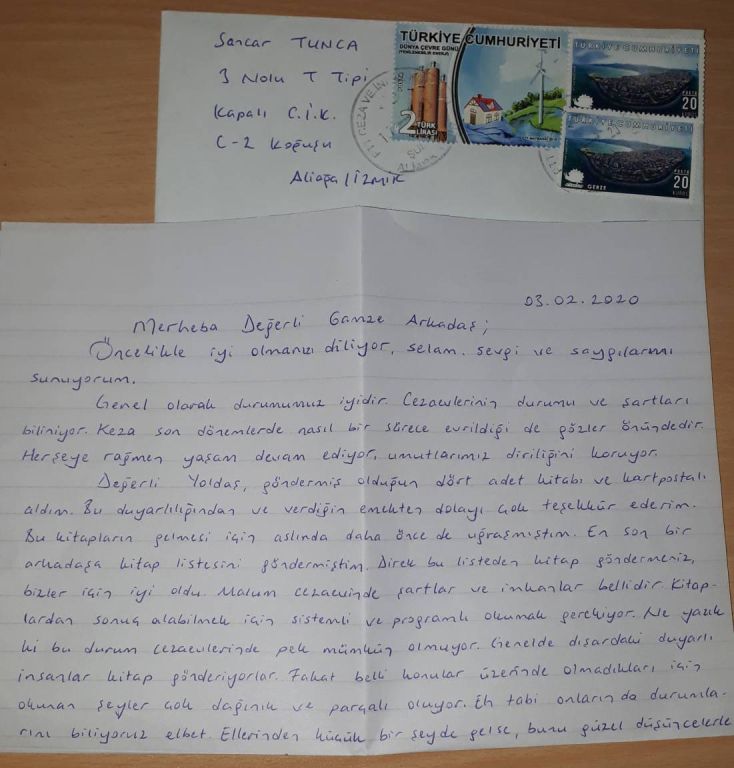 Sancar TUNCA
3 Nolu T Tipi
Kapalı C.İ.K.
C-2 Koğuşu
Aliağa / İZMİR
TÜRKİYE CUMHURİYETİ
DÜNYA ÇEVRE GÜNÜ
(YENİLENEBİLİR ENERJİ)
2 TÜRK LİRASI
TÜRKİYE CUMHURİYETİ
POSTA
20
TÜRKİYE CUMHURİYETİ
POSTA
20
KURUŞ
GERZE
PTT CEZA VE İN
ALİAĞA
03.02.2020
Merheba Değerli Gamze Arkadaş;
Öncelikle iyi olmanızı diliyor, selam, sevgi ve saygılarımı
sunuyorum.
Genel olarak durumumuz iyidir. Cezaevlerinin durumu ve şartları
biliniyor. Keza son dönemlerde nasıl bir sürece evrildiği de gözler önündedir.
Herşeye rağmen yaşam devam ediyor, umutlarımız diriliğini koruyor.
Değerli Yoldaş, göndermiş olduğun dört adet kitabı ve kartpostalı
aldım. Bu duyarlılığından ve verdiğin emekten dolayı çok teşekkür ederim.
Bu kitapların gelmesi için aslında daha önce de uğraşmıştım. En son bir
arkadaşa kitap listesini göndermiştim. Direk bu listeden kitap göndermeniz,
bizler için iyi oldu. Malum cezaevinde şartlar ve imkanlar bellidir. Kitap-
lardan sonuç alabilmek için sistemli ve programlı okumak gerekiyor. Ne yazık
ki bu durum cezaevlerinde pek mümkün olmuyor. Genelde dışardaki duyarlı
insanlar kitap gönderiyorlar. Fakat belli konular üzerinde olmadıkları için
okunan şeyler çok dağınık ve parçalı oluyor. Eh tabi onların da durumla-
rını biliyoruz elbet. Ellerinden küçük bir şeyde gelse, bunu güzel düşüncelerle